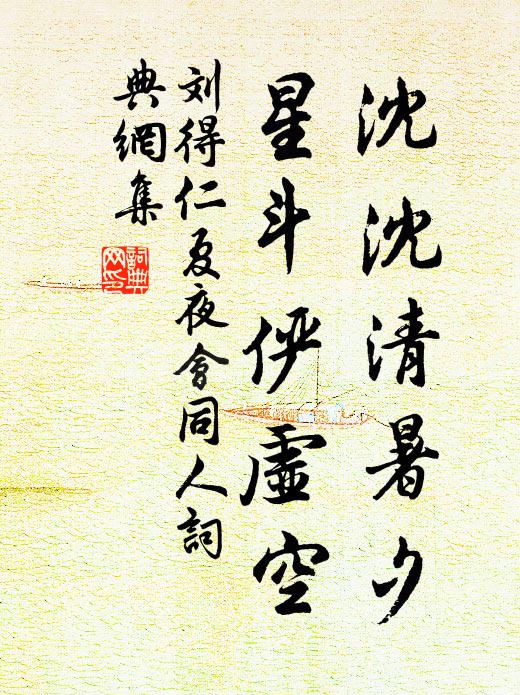 沈沈清暑夕
星斗俨虚空
刘得仁夏夜會同人詞
典網集
詞典
网印